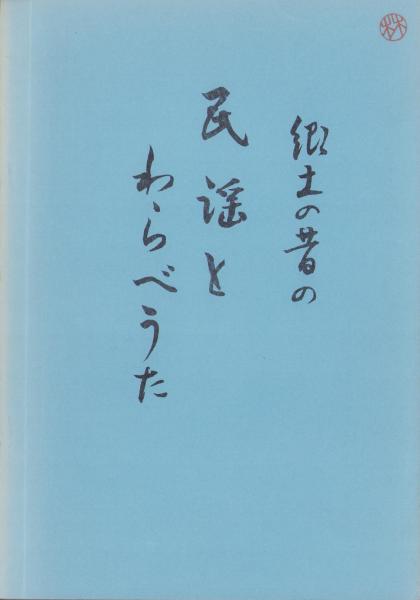 郷土の昔の
民謡と
わらべうた